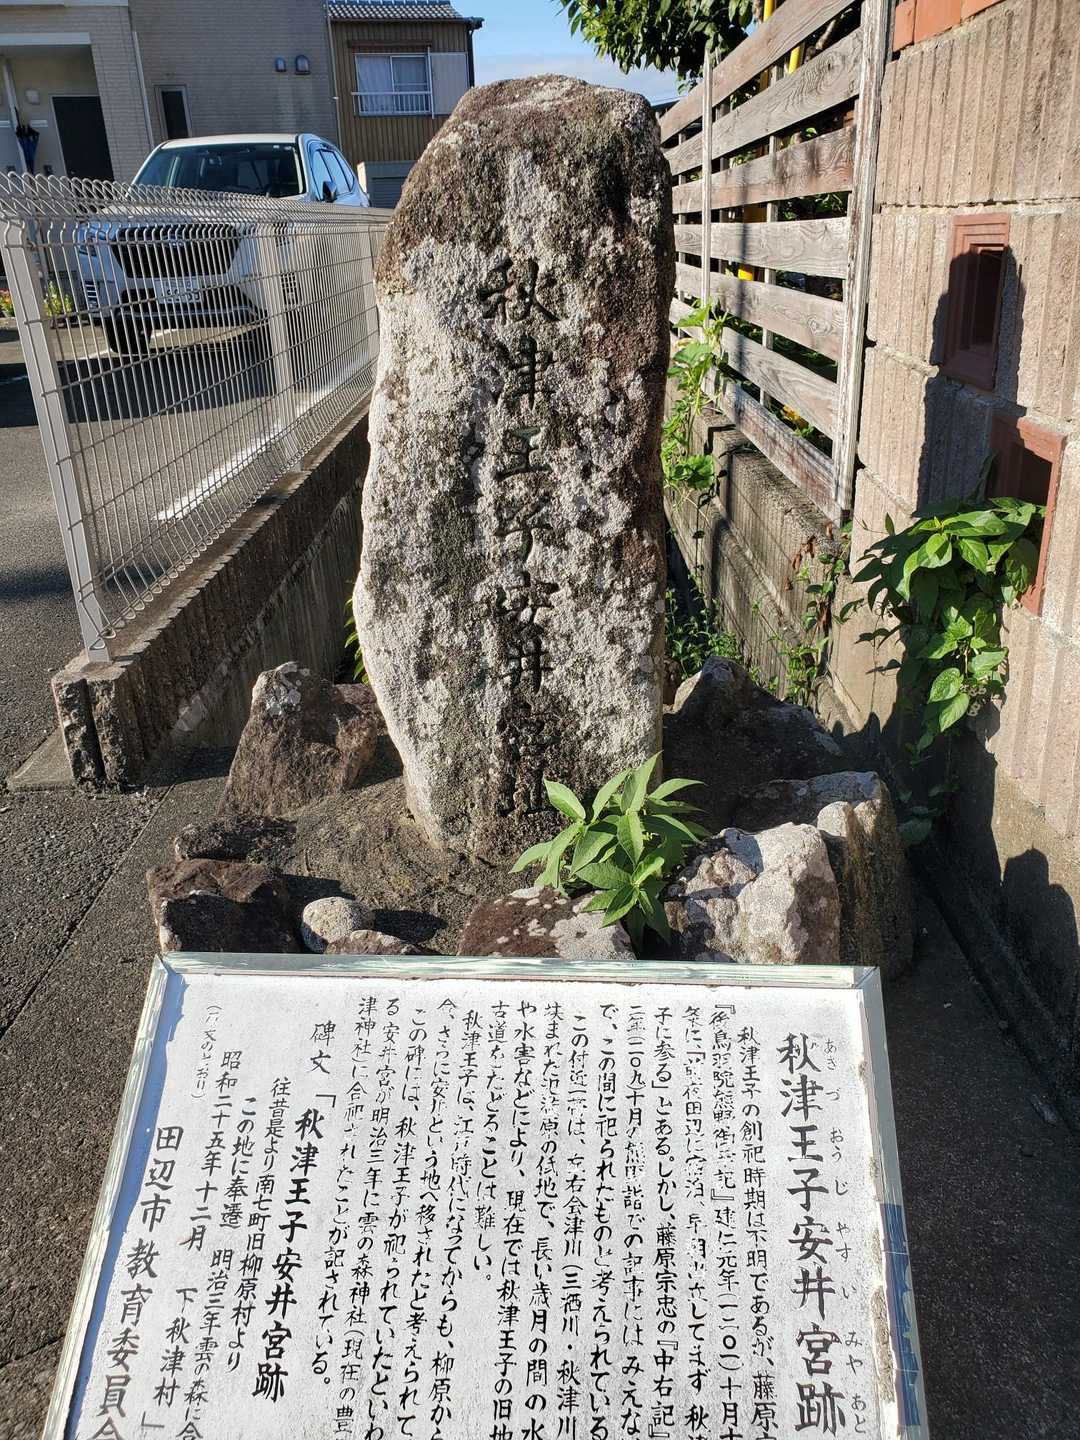 秋津王子安井宮址
秋津王子安井宮跡
あきづおうじやすいみやあと
秋津王子の創祀時期は不明であるが、藤原
『後鳥羽院熊野御幸記』建仁元年(一二〇一)十月十
条に、「昨夜田辺に宿泊、早朝出立してまず秋津
子に参る」とある。しかし、藤原宗忠の『中右記』
十月の熊野詣での記事にはみえない
で、この間に祀られたものと考えられている
この付近一帯は、左右会津川(三栖川・秋津川
挟まれた沼沢原の低地で、長い歳月の間の水
や水害などにより、現在では秋津王子の旧地
古道をたどることは難しい。
秋津王子は、江戸時代になってからも、柳原から
今、さらに安井という地へ移されたと考えられて
この碑には、秋津王子が祀られていたといわ
る安井宮が明治三年に雲の森神社(現在の豊
津神社)に合祀されたことが記されている。
碑文「秋津王子安井宮跡
往昔是より南七町旧柳原村より
この地に奉遷 明治三年雲の森に合
昭和二十五年十二月 下秋津村」
(原文のとおり)
田辺市教育委員会